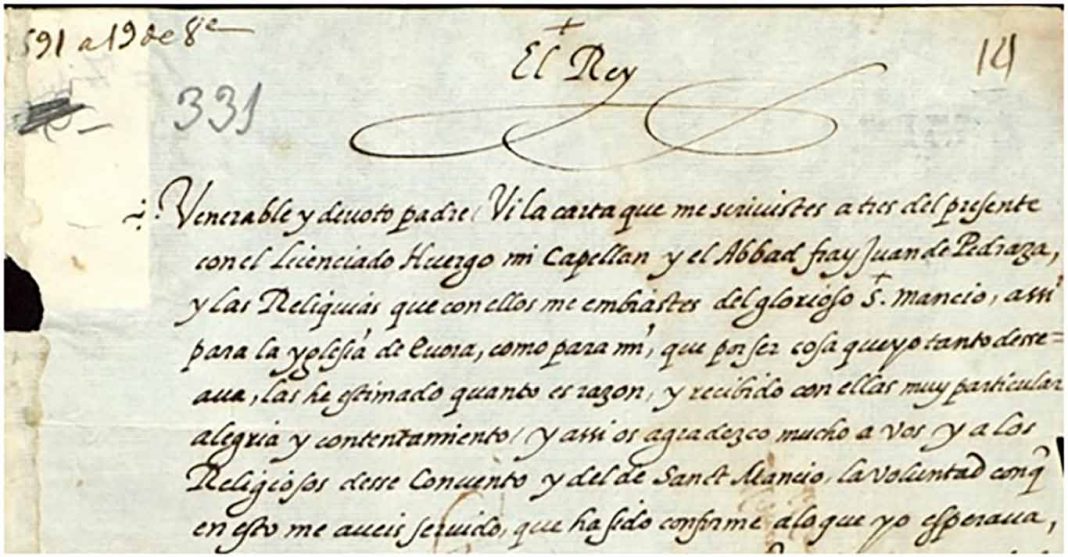 591 a 19 de 8e
El Rey
14
331
Venerable y devoto padre, Vi la carta que me scrivistes a tres del presente
con el Licenciado Huergo mi Capellan y el Abbad fray Juan de Pedraza,
y las Reliquias que con ellos me embiastes del glorioso S.t Mancio, assi
para la yglesia de Evora, como para mi, que por ser cosa que yo tanto desse=
ava, las he estimado quanto es razon, y recibido con ellas muy particular
alegria y contentamiento, y assi os agradezco mucho a vos y a los
Religiosos desse Convento y del de Sanct Mancio, la voluntad conq̃
en esto me aveis servido, que ha sido conforme a lo que yo esperava,